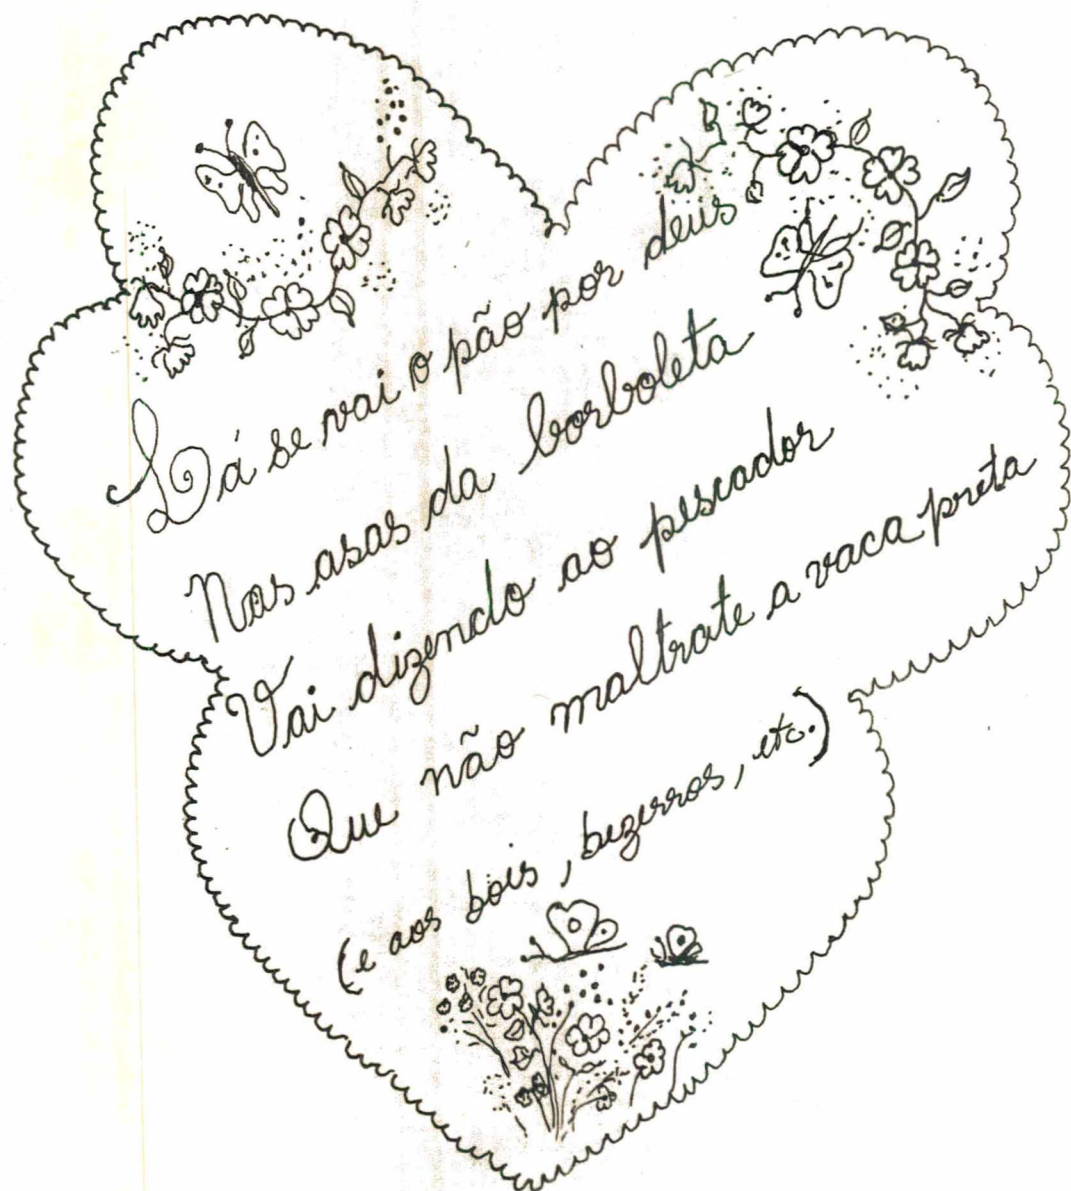 Lá se vai o pão por deus
Nas asas da borboleta
Vai dizendo ao pescador
Que não maltrate a vaca preta
(e aos bois, bezerros, etc.)